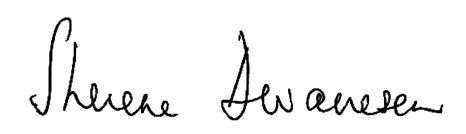 Sherene Devanesen